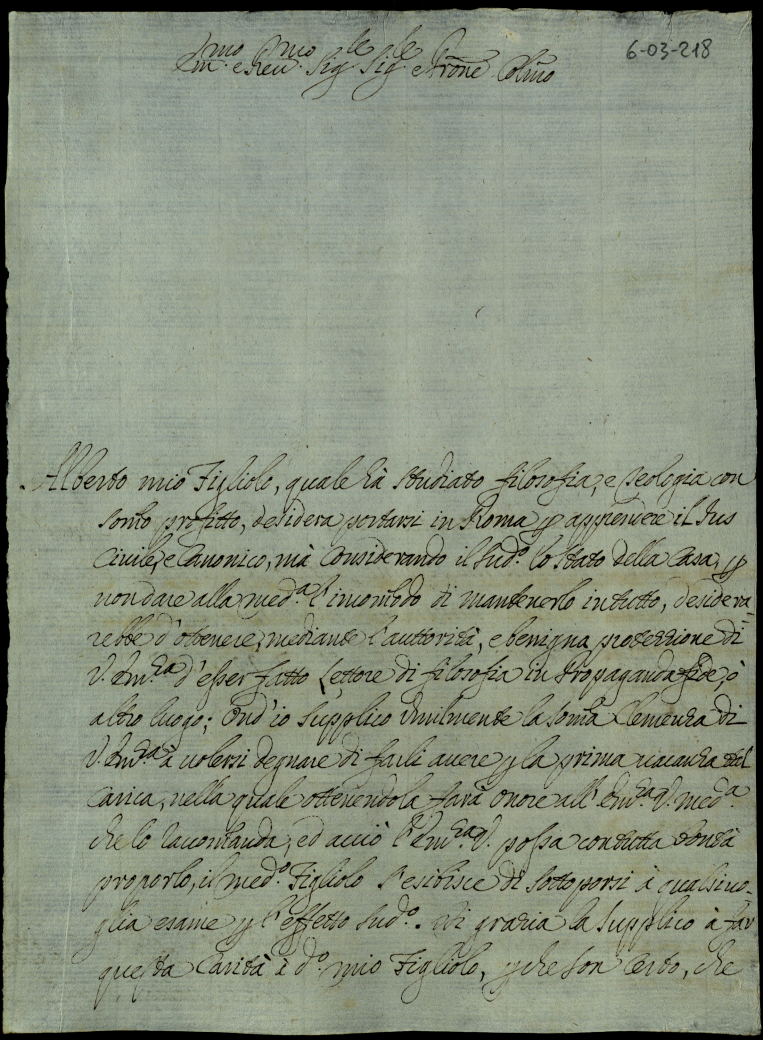 6-03-218
Em.mo e Reu.mo Sig.le Sig.le e Prone Colmo
Alberto mio Figliolo, quale hà studiato filosofia, e Teologia con
somo profitto, desidera portarsi in Roma p apprendere il Jus
Civile, e Canonico, mà considerando il sud.o lo stato della Casa, p
non dare alla med.a l'incomodo di mantenerlo in tutto, desidera=
rebbe d'ottenere, mediante l'auttorità, e benigna protettione di
V. Em.za d'esser fatto Lettore di filosofia in Propaganda fide, ò
altro luogo; Ond'io supplico humilmente la soma Clemenza di
V. Em.za à volersi degnare di farli avere p la prima vacanza tal
Carica, nella quale ottenendola farà onore all' Em.za V. med.a
che lo racomanda, ed acciò l'Em.za V. possa con tutta bontà
proporlo, il med.o Figliolo s'esibisce di sottoporsi à qualsiuo-
glia esame p l'effetto sud.o. Di grazia la supplico à far
questa Carità à d.o mio Figliolo, p che son certo, che